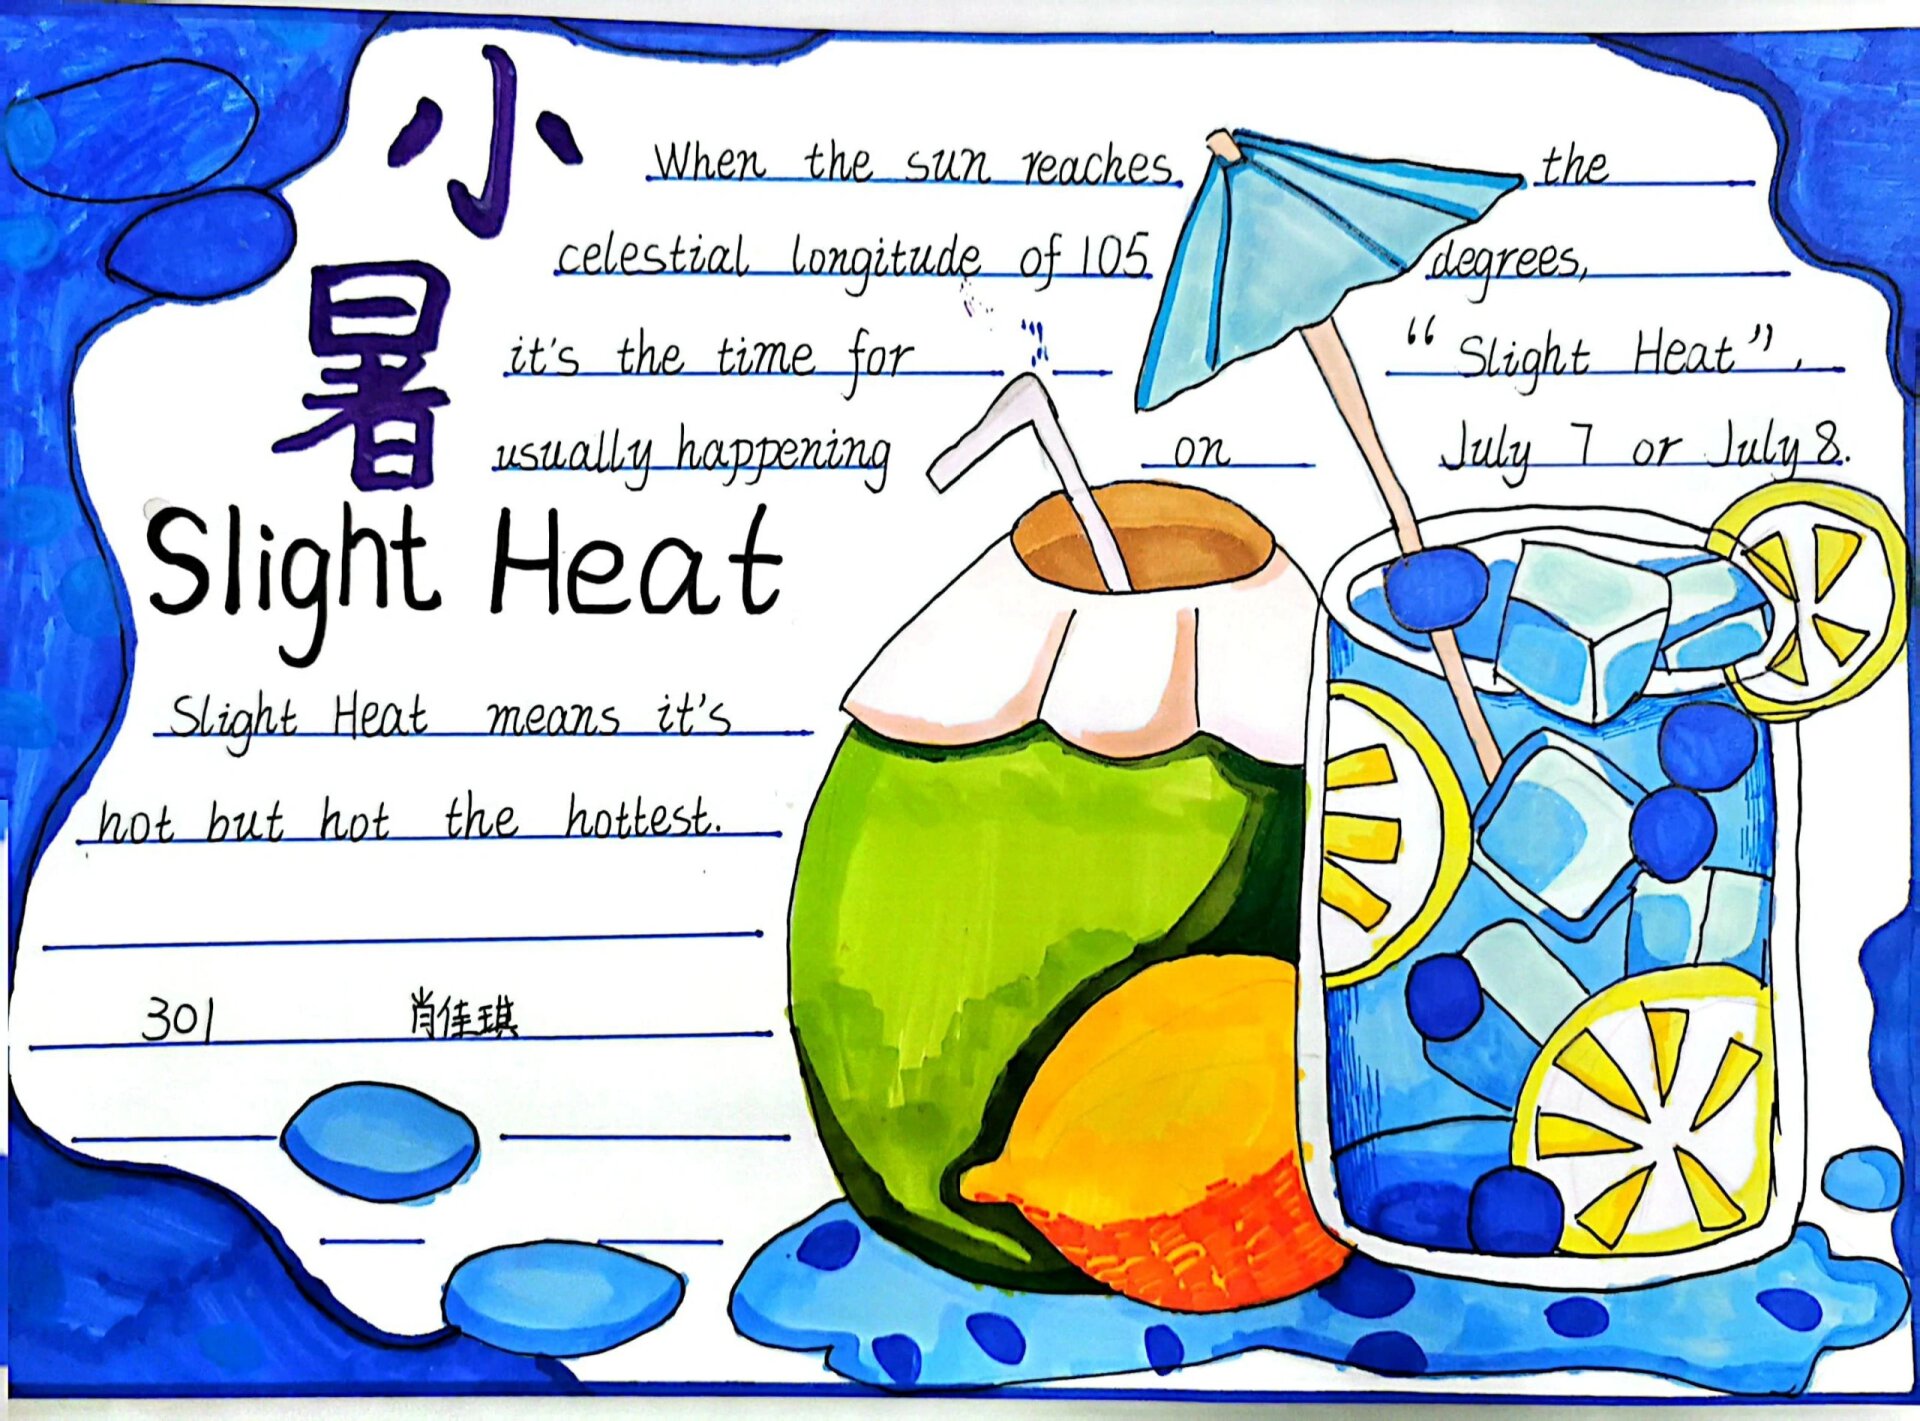 小暑
When the sun reaches the
celestial longitude of 105 degrees,
it's the time for “Slight Heat”,
usually happening on July 7 or July 8.
Slight Heat
Slight Heat means it's
hot but hot the hottest.
301 肖佳琪